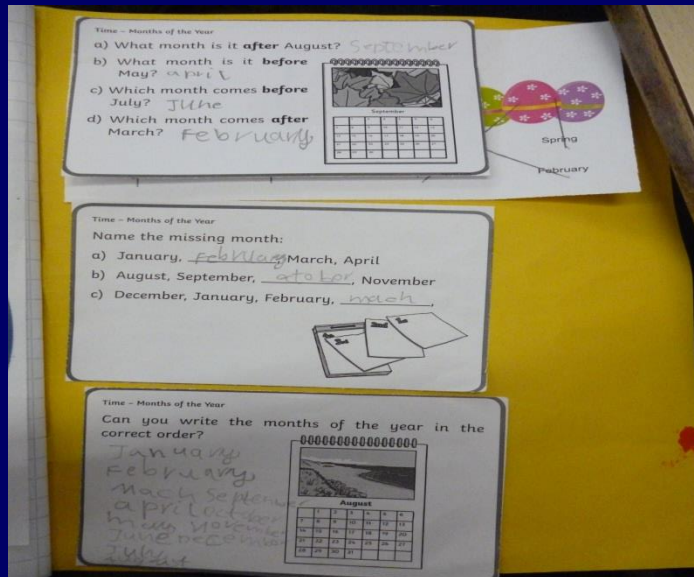 Time – Months of the Year
a) What month is it after August? September
b) What month is it before
May? april
c) Which month comes before
July? June
d) Which month comes after
March? February
September
Spring
February
Time – Months of the Year
Name the missing month:
a) January, February, March, April
b) August, September, otober, November
c) December, January, February, mach,
Time – Months of the Year
Can you write the months of the year in the
correct order?
January
February
mach September
april october
may november
June December
July
August
1 2 3 4 5 6
7 8 9 10 11 12 13
14 15 16 17 18 19 20
21 22 23 24 25 26 27
28 29 30 31